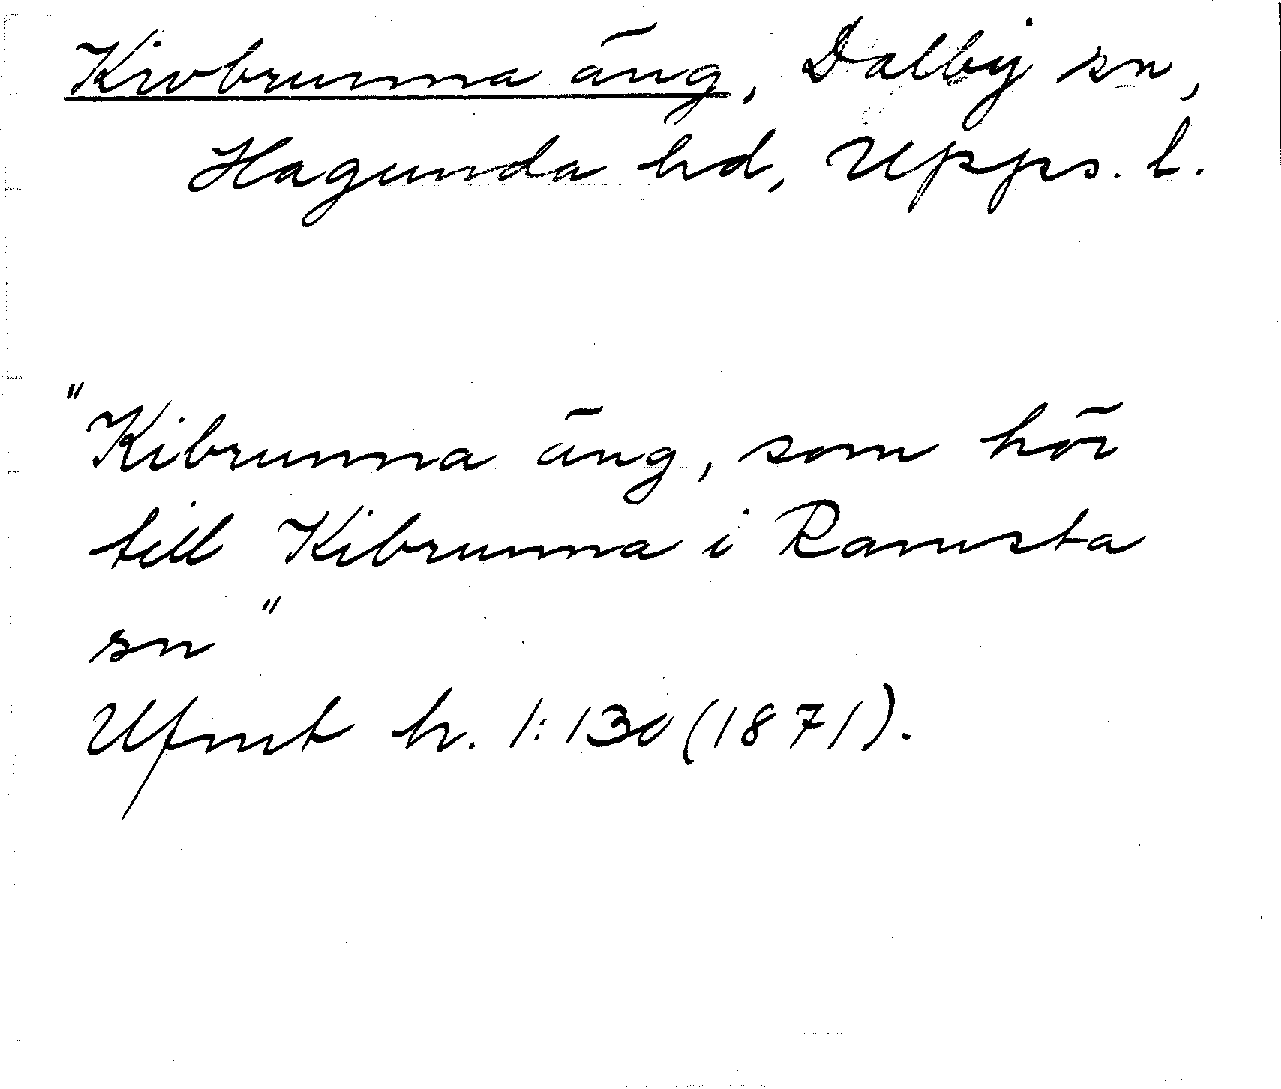 Kivbrunna äng, Dalby sn,
Hagunda hd, Upps. l.
"Kibrunna äng, som hör
till Kibrunna i Ramsta
sn"
Ufmt h. 1:130 (1871).